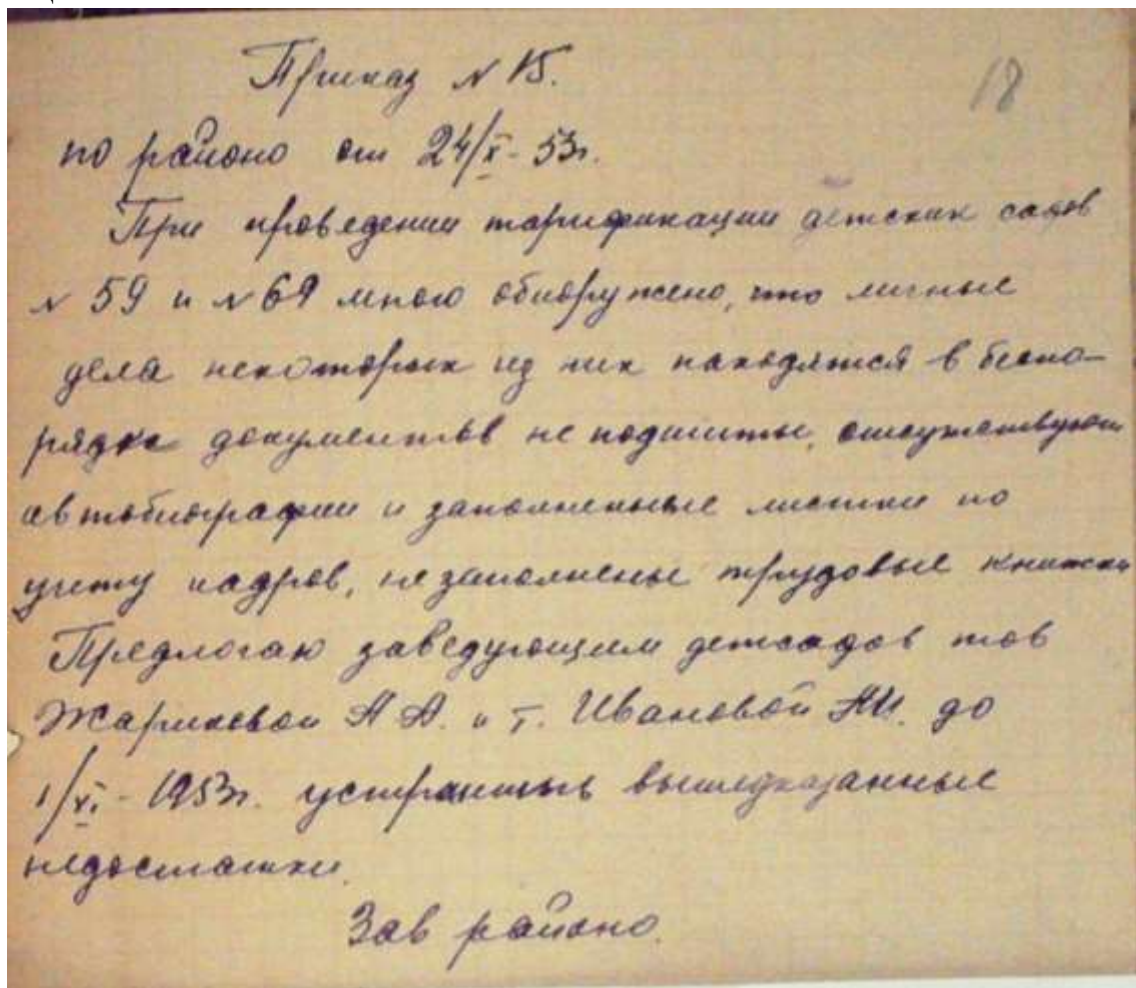 Приказ № 15.
18
по районо от 24/X - 53г.
При проведении тарификации детских садов
№ 59 и № 69 мною обноружено, что личные
дела некоторых из них находятся в беспо-
рядке документов не подшиты, отсутствуют
автобиографии и заполненные листки по
учету кадров, не заполнены трудовые книжки
Предлогаю заведующим детсадов тов
Жариковой А.А. и т. Ивановой до
1/XI - 1953г. устранить вышеуказанные
недостатки.
Зав районо.